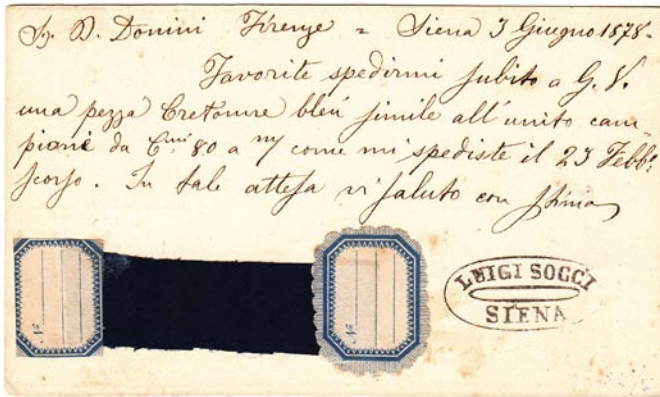 Sg. D. Donini Firenze = Siena 3 Giugno 1878 -
Favorite spedirmi subito a G. V.
una pezza Cretonne bleu simile all'unito cam-
pione da Cmi 80 a my come mi spediste il 23 Febb:
scorso. In tale attesa vi saluto con stima
Nº
Nº
LUIGI SOCCI
SIENA